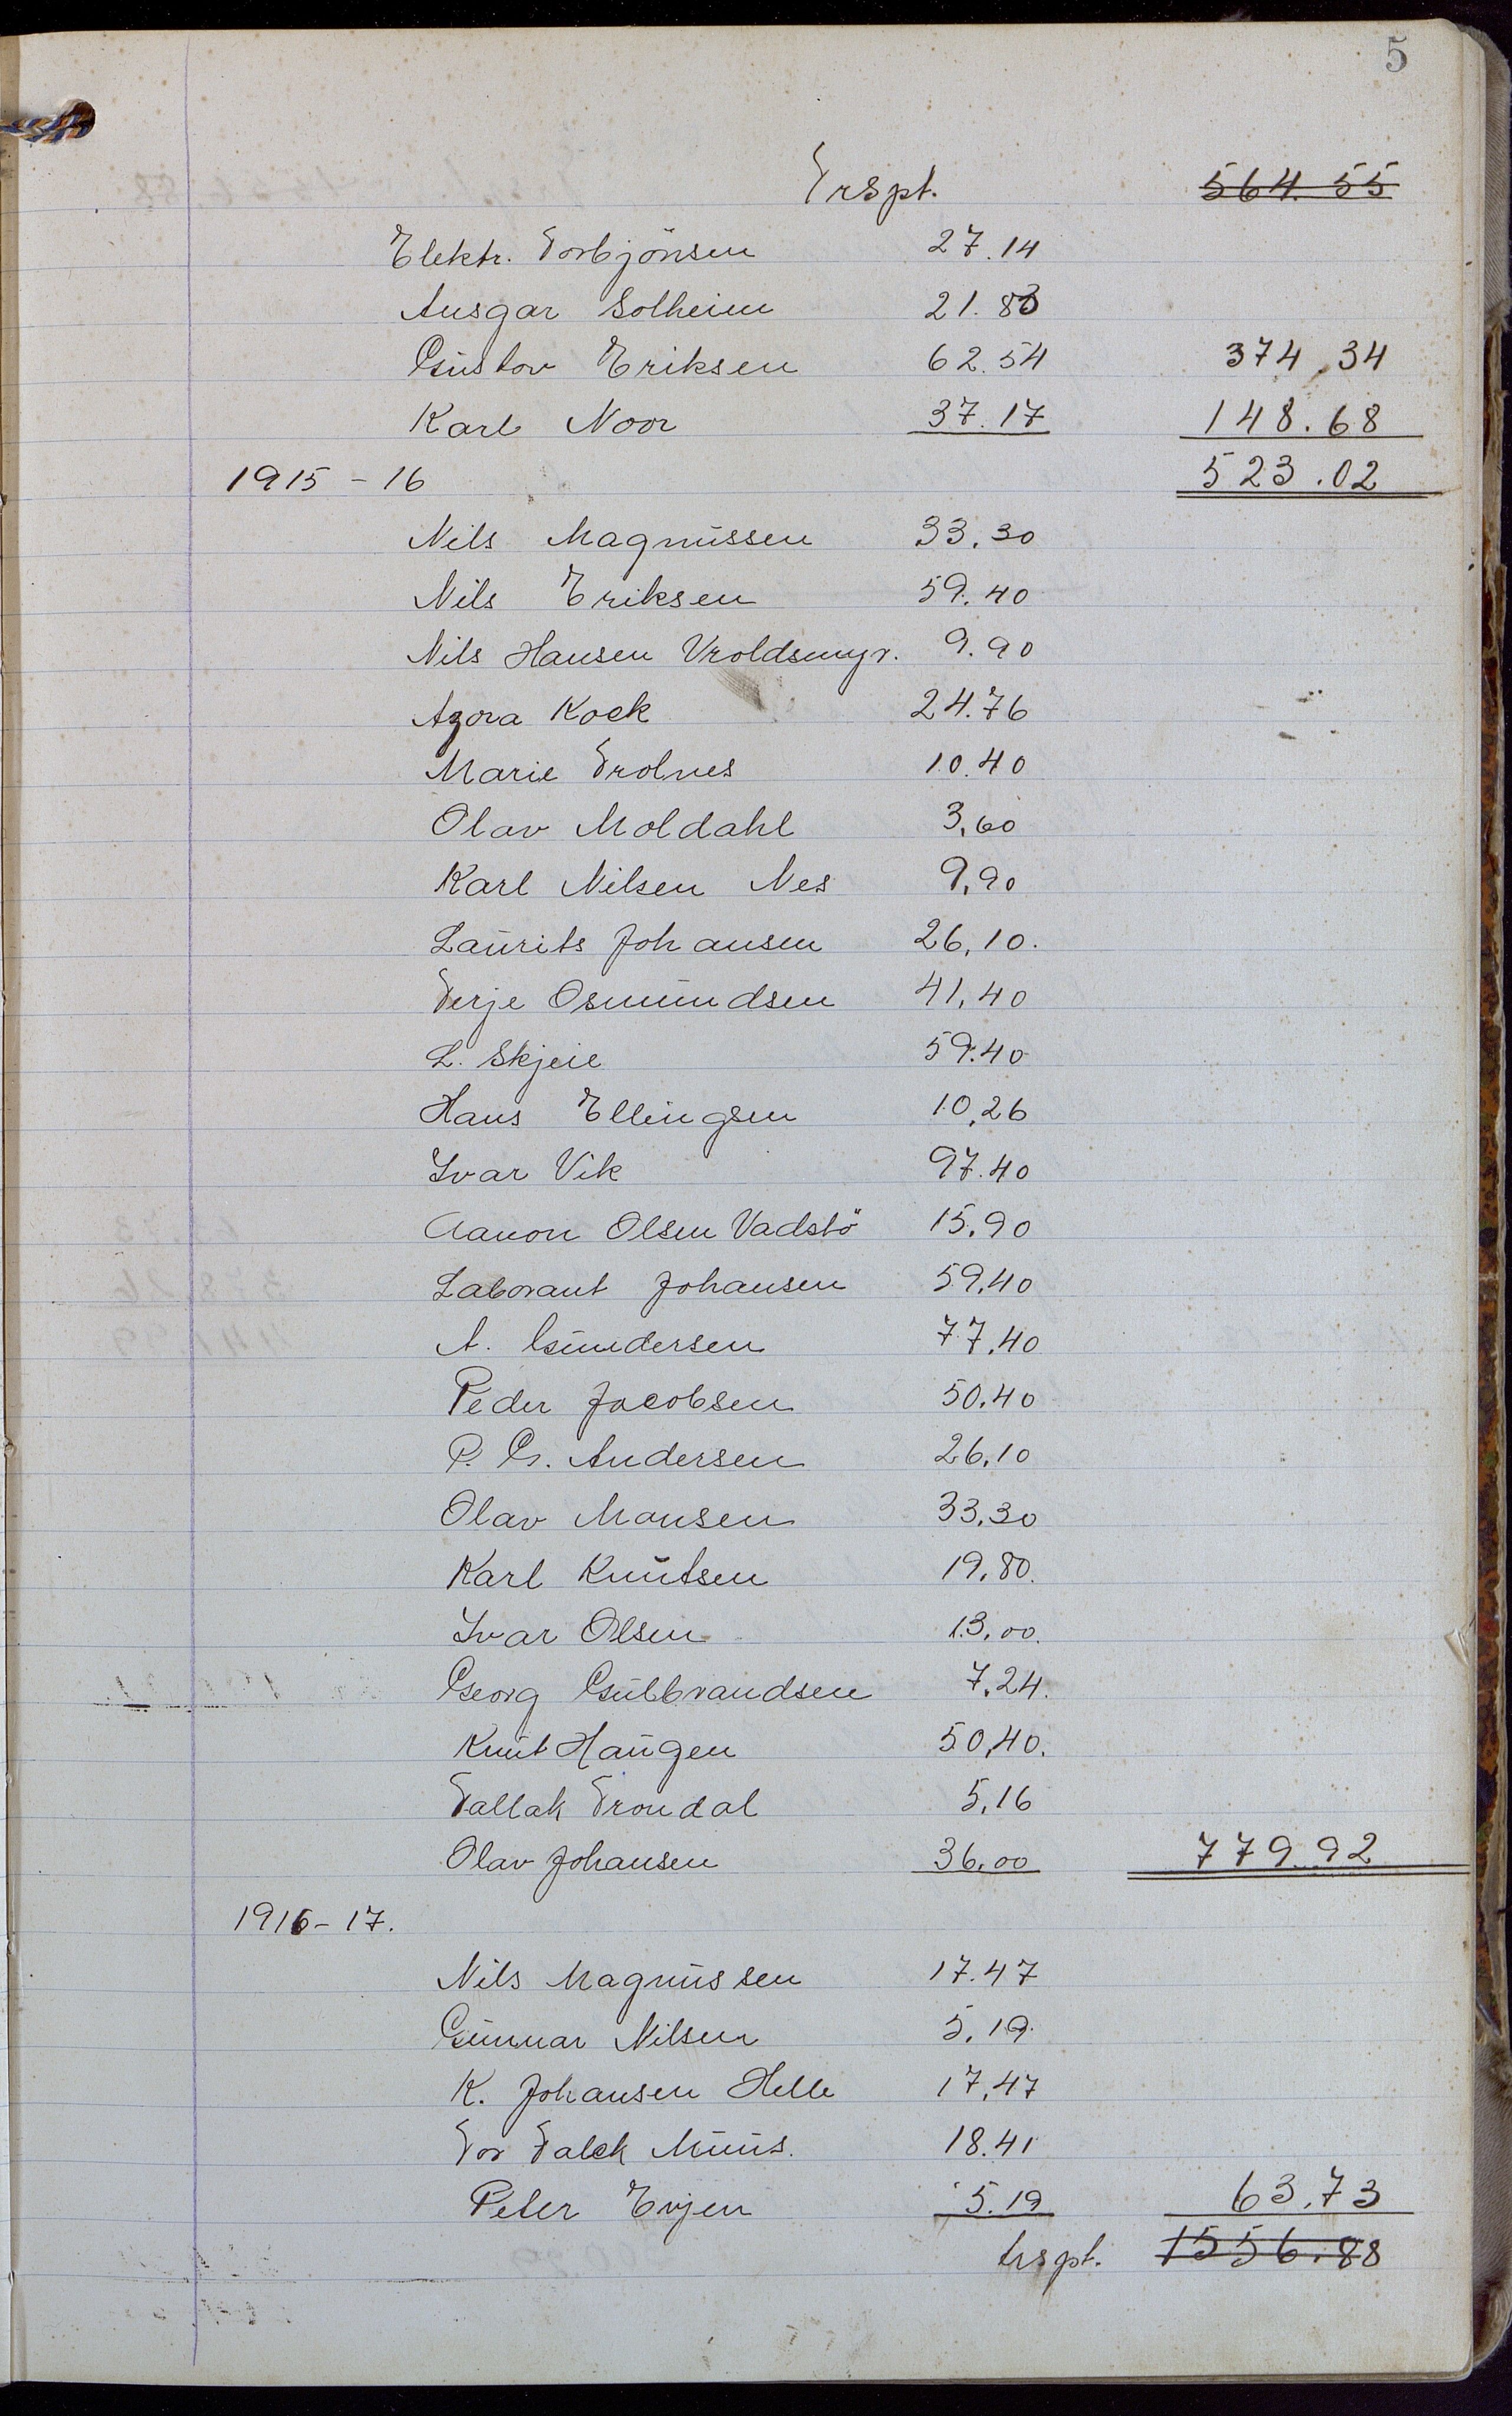 5
Trspt. 564.55
Elektr. Torbjönsen 27.14
Ansgar Solheim 21.83
Gustov Eriksen 62.54 374.34
Karl Noor 37.17 148.68
1915-16 523.02
Nils Magnussen 33.30
Nils Eriksen 59.40
Nils Hansen Vroldsmyr. 9.90
Agora Kock 24.76
Marie Trolnes 10.40
Olav Moldahl 3,60
Karl Nilsen Nes 9,90
Laurits Johansen 26,10.
Terje Osmundsen 41,40
L. Skjeie 59.40
Hans Ellingsen 10,26
Ivar Vik 97.40
Aanon Olsen Vadstö 15.90
Laborant Johansen 59,40
A. Gundersen 77,40
Peder Jacobsen 50,40
P. G. Andersen 26,10
Olav Monsen 33,30
Karl Knutsen 19,80.
Ivar Olsen 13,00.
Georg Gulbrandsen 7,24.
Knut Haugen 50,40.
Tallak Trondal 5,16
Olav Johansen 36,00 779.92
1916-17.
Nils Magnussen 17.47
Gunnar Nilsen 5,19.
K. Johansen Helle 17,47
Tor Falck Muus. 18.41
Peter Evjen 5.19 63,73
trspt. 1556.88